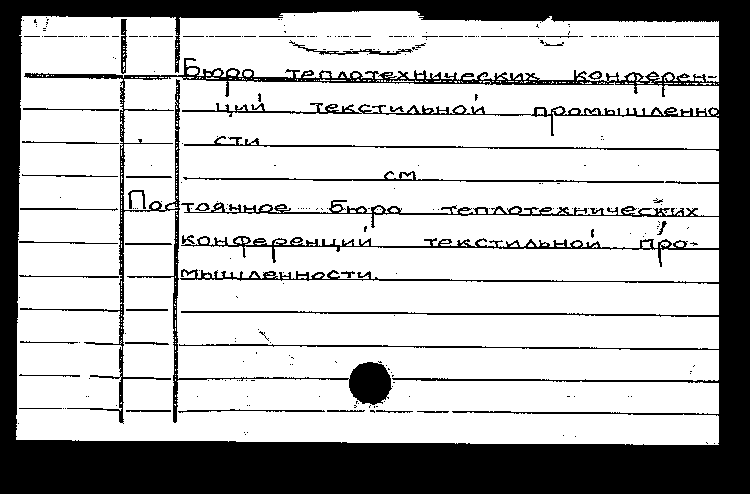 Бюро теплотехнических конферен-
ций текстильной промышленно
сти
см
Постоянное бюро теплотехнических
конференций текстильной про-
мышленности.